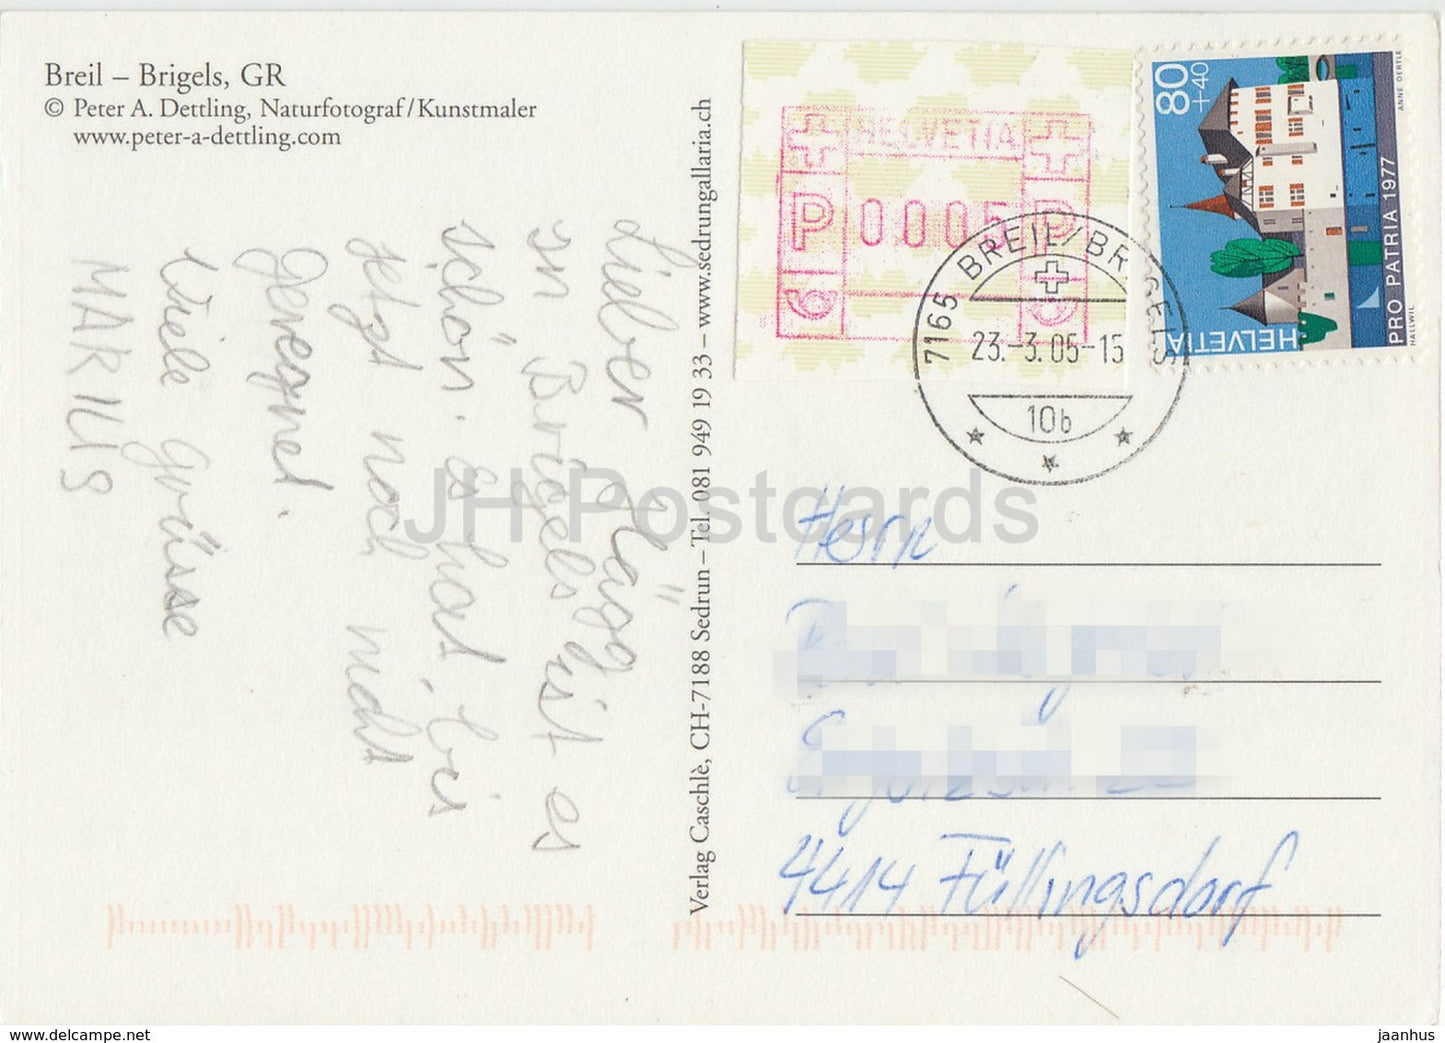 Breil – Brigels, GR
© Peter A. Dettling, Naturfotograf/Kunstmaler
www.peter-a-dettling.com
Lieber Gäög
in Brigels ist es
schön. es hat bis
jetzt noch nicht
geregnet.
Viele grüsse
MARIUS
Verlag Caschlè, CH-7188 Sedrun – Tel. 081 949 19 33 – www.sedrungallaria.ch
HELVETIA
P 0005 P
7165 BREIL/BRIGELS
23.-3.05-15
10b
80
+40
HELVETIA
PRO PATRIA 1977
HALLWIL
ANNE OERTLE
Herrn
4414 Füllingsdorf
JH Postcards
www.delcampe.net
jaanhus